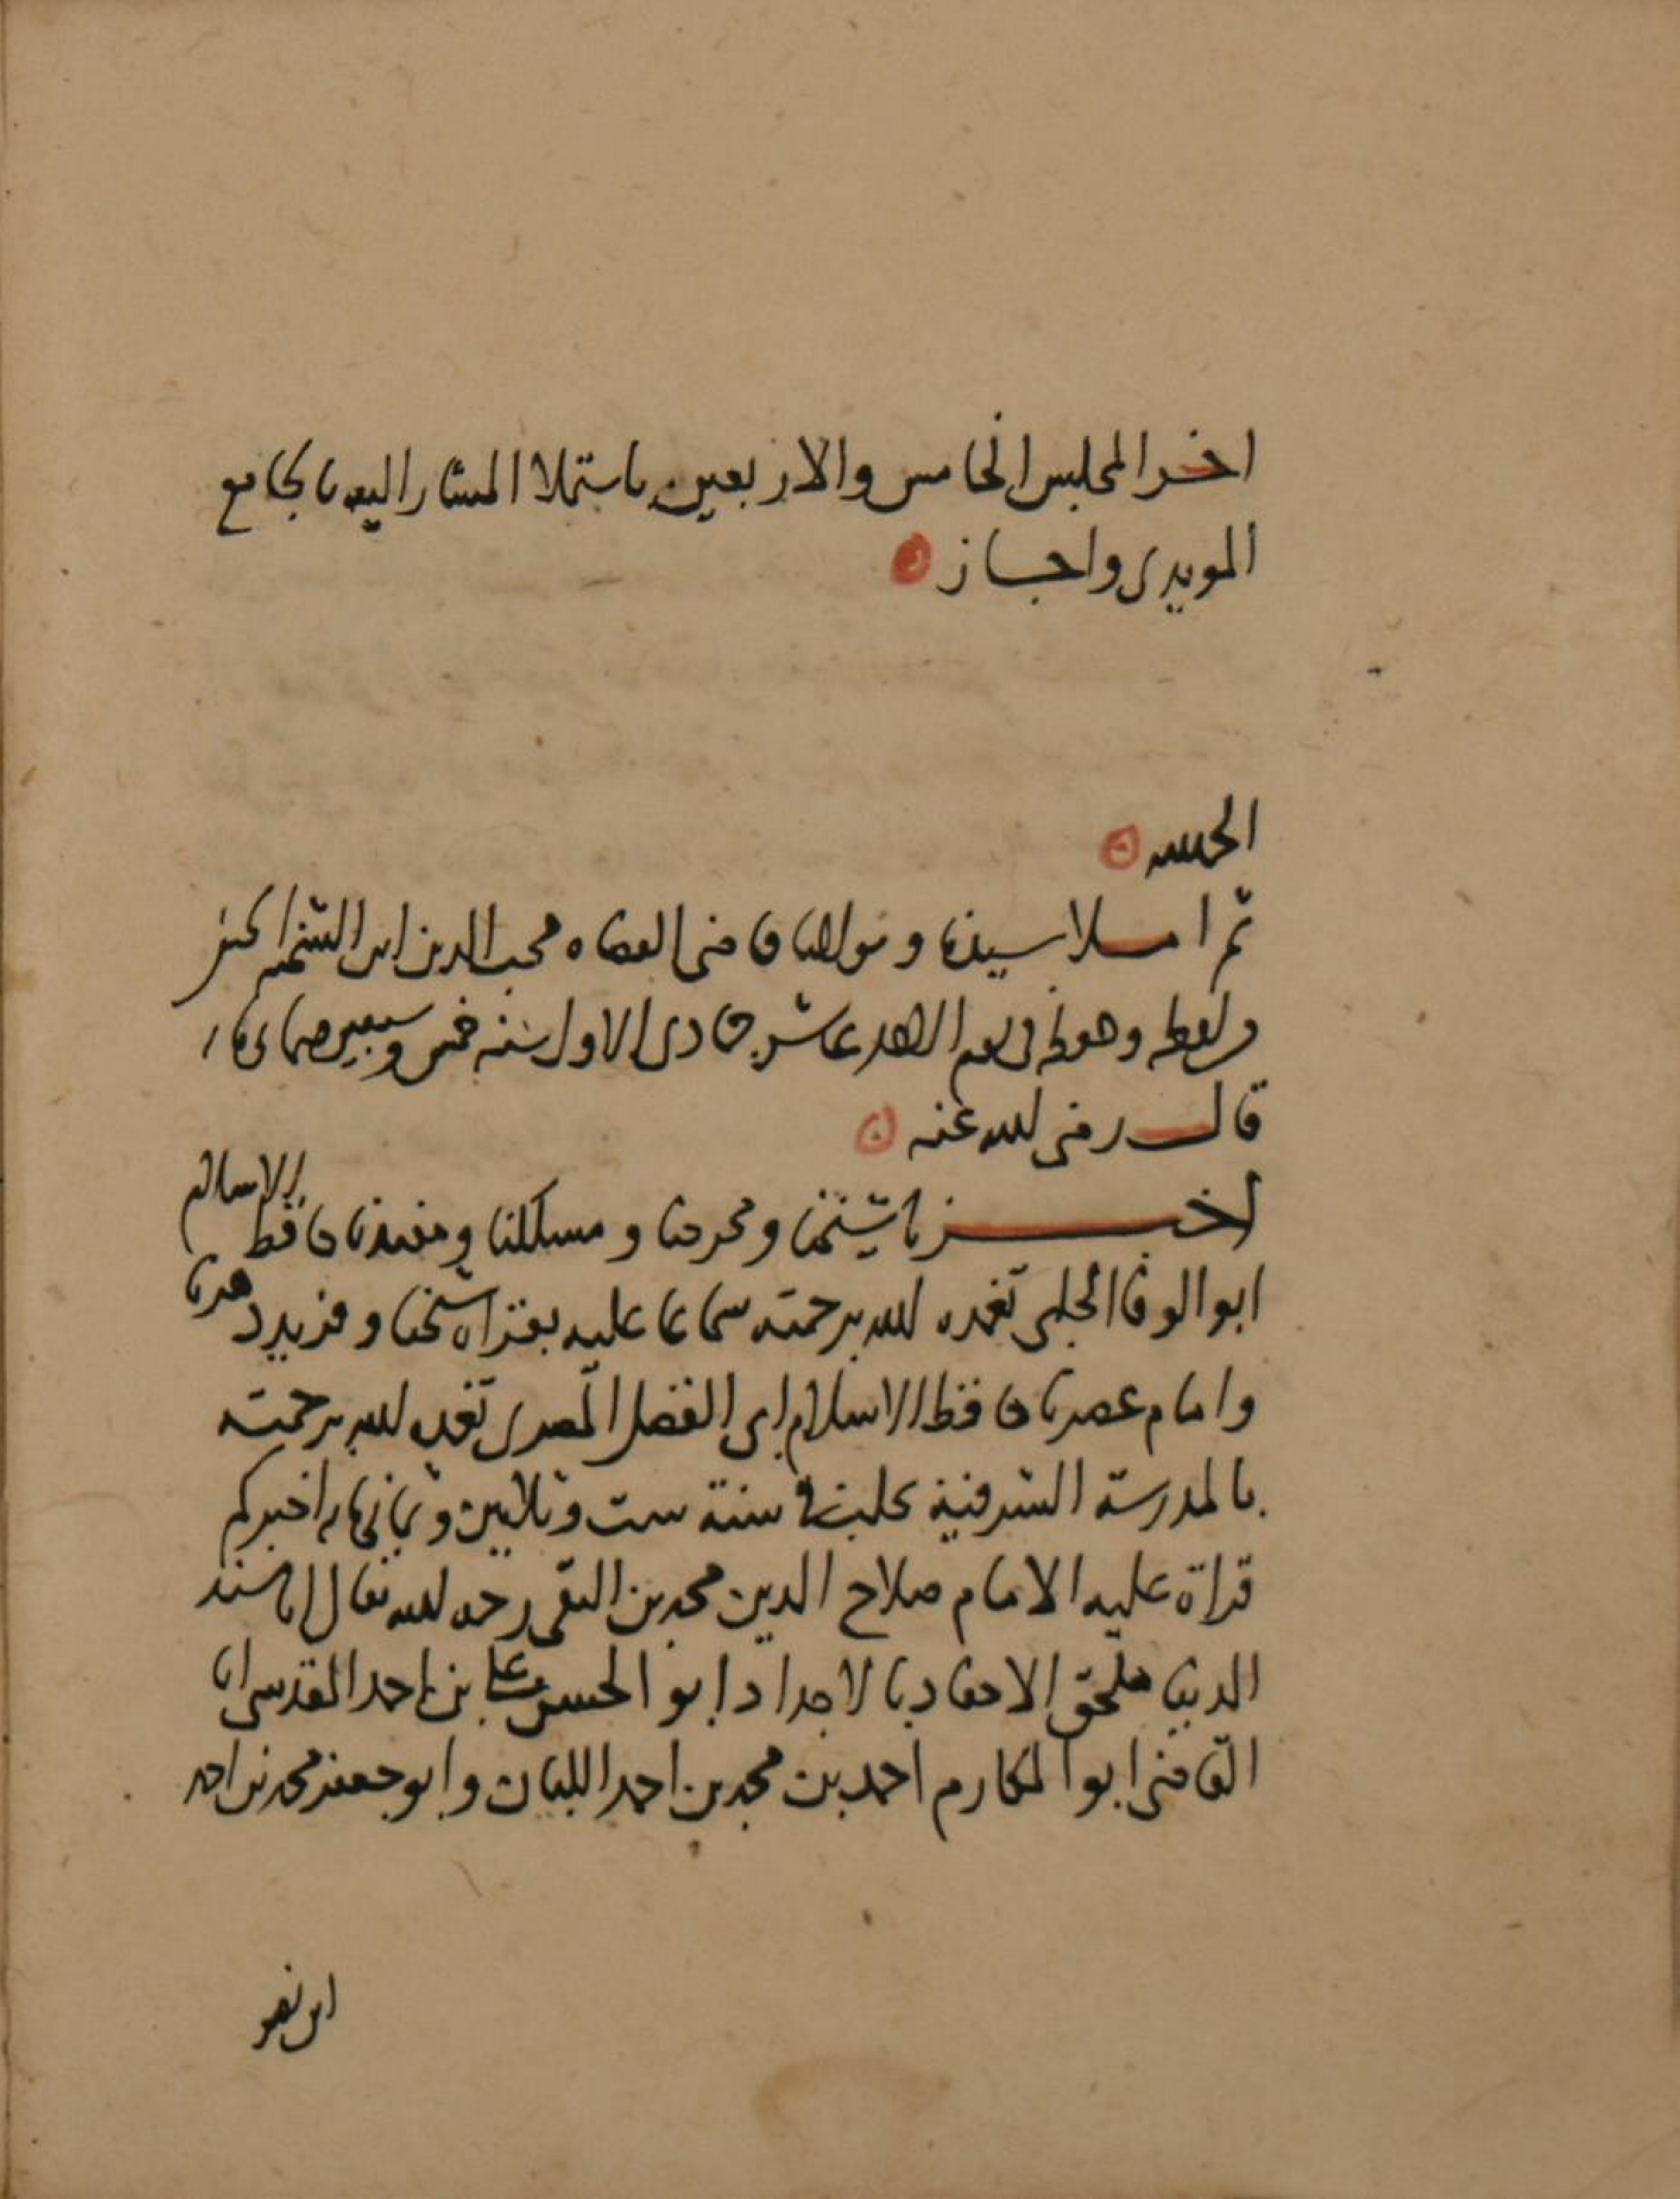 اخر المجلس الخامس والاربعين باستملا المشار اليه بالجامع
المويدى واجاز
الحمد لله
ثم املا سيدنا ومولانا قاضى القضاه محب الدين ابن الشحنه الحنفى
من لفظه وحفظه فى يوم الاحد عاشر جمادى الاول سنه خمس وسبعين وثمانمايه
قال رضى الله عنه
اخبرنا شيخنا ومخرجنا ومسلكنا ومفيدنا حافظ الاسلام
ابو الوفا الحلبى تغمده الله برحمته سماعا عليه بقراة شيخنا وفريد دهرنا
وامام عصرنا حافظ الاسلام ابى الفضل المصرى تغمده الله برحمته
بالمدرسة الشرفية بحلب فى سنة ست وثلاثين وثمانمايه اخبركم
قراة عليه الامام صلاح الدين محمد بن التقى رحمه الله تعالى انا مسند
الدنيا ملحق الاحفاد بالاجداد ابو الحسن على بن احمد المقدسى انا
القاضى ابو المكارم احمد بن محمد بن احمد اللبان وابو جعفر محمد بن احمد
ابن نصر